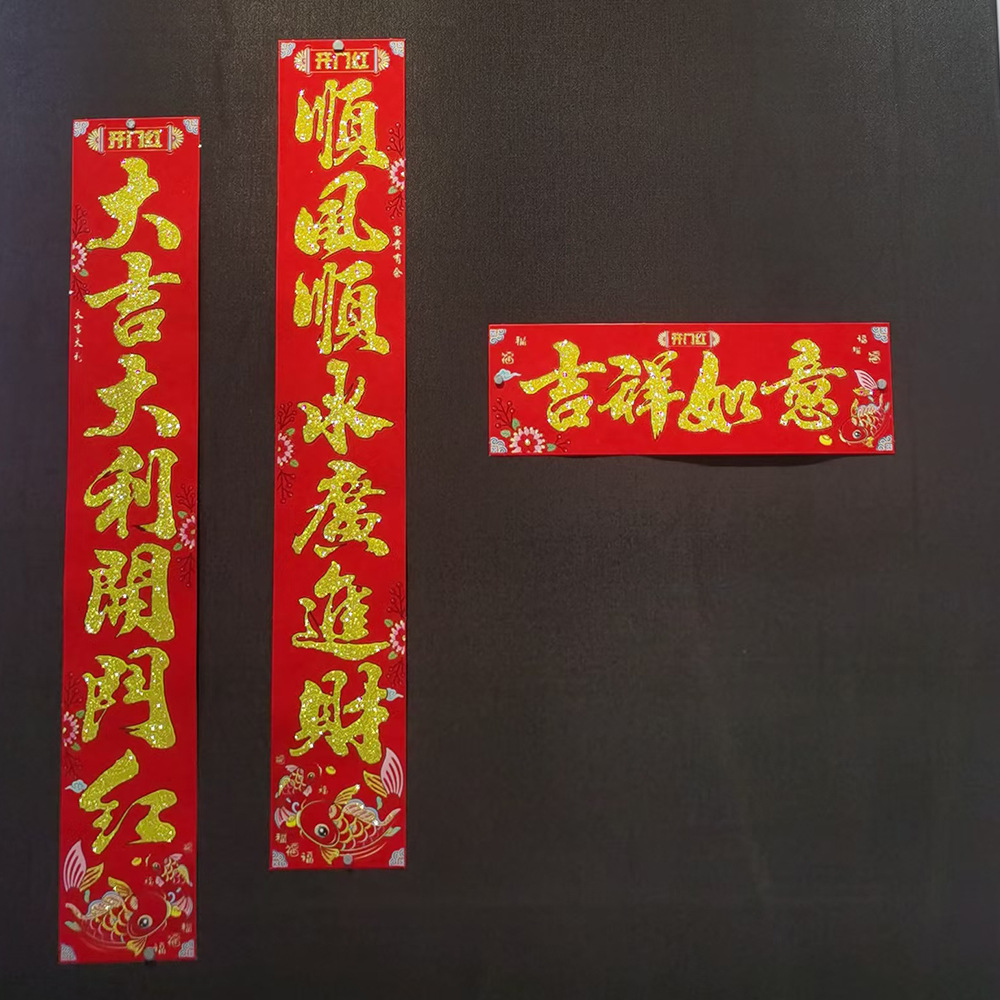 开门红
大吉大利開門红
大吉大利
开门红
順風順水廣進財
富贵有余
开门红
吉祥如意